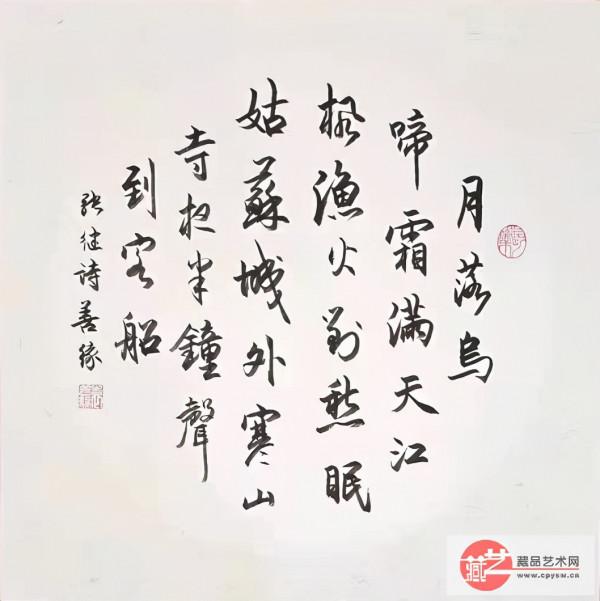 月落烏
啼霜滿天江
楓漁火對愁眠
姑蘇城外寒山
寺夜半鐘聲
到客船
张继诗善缘
藏艺
藏品艺术网
www.cpysw.cn